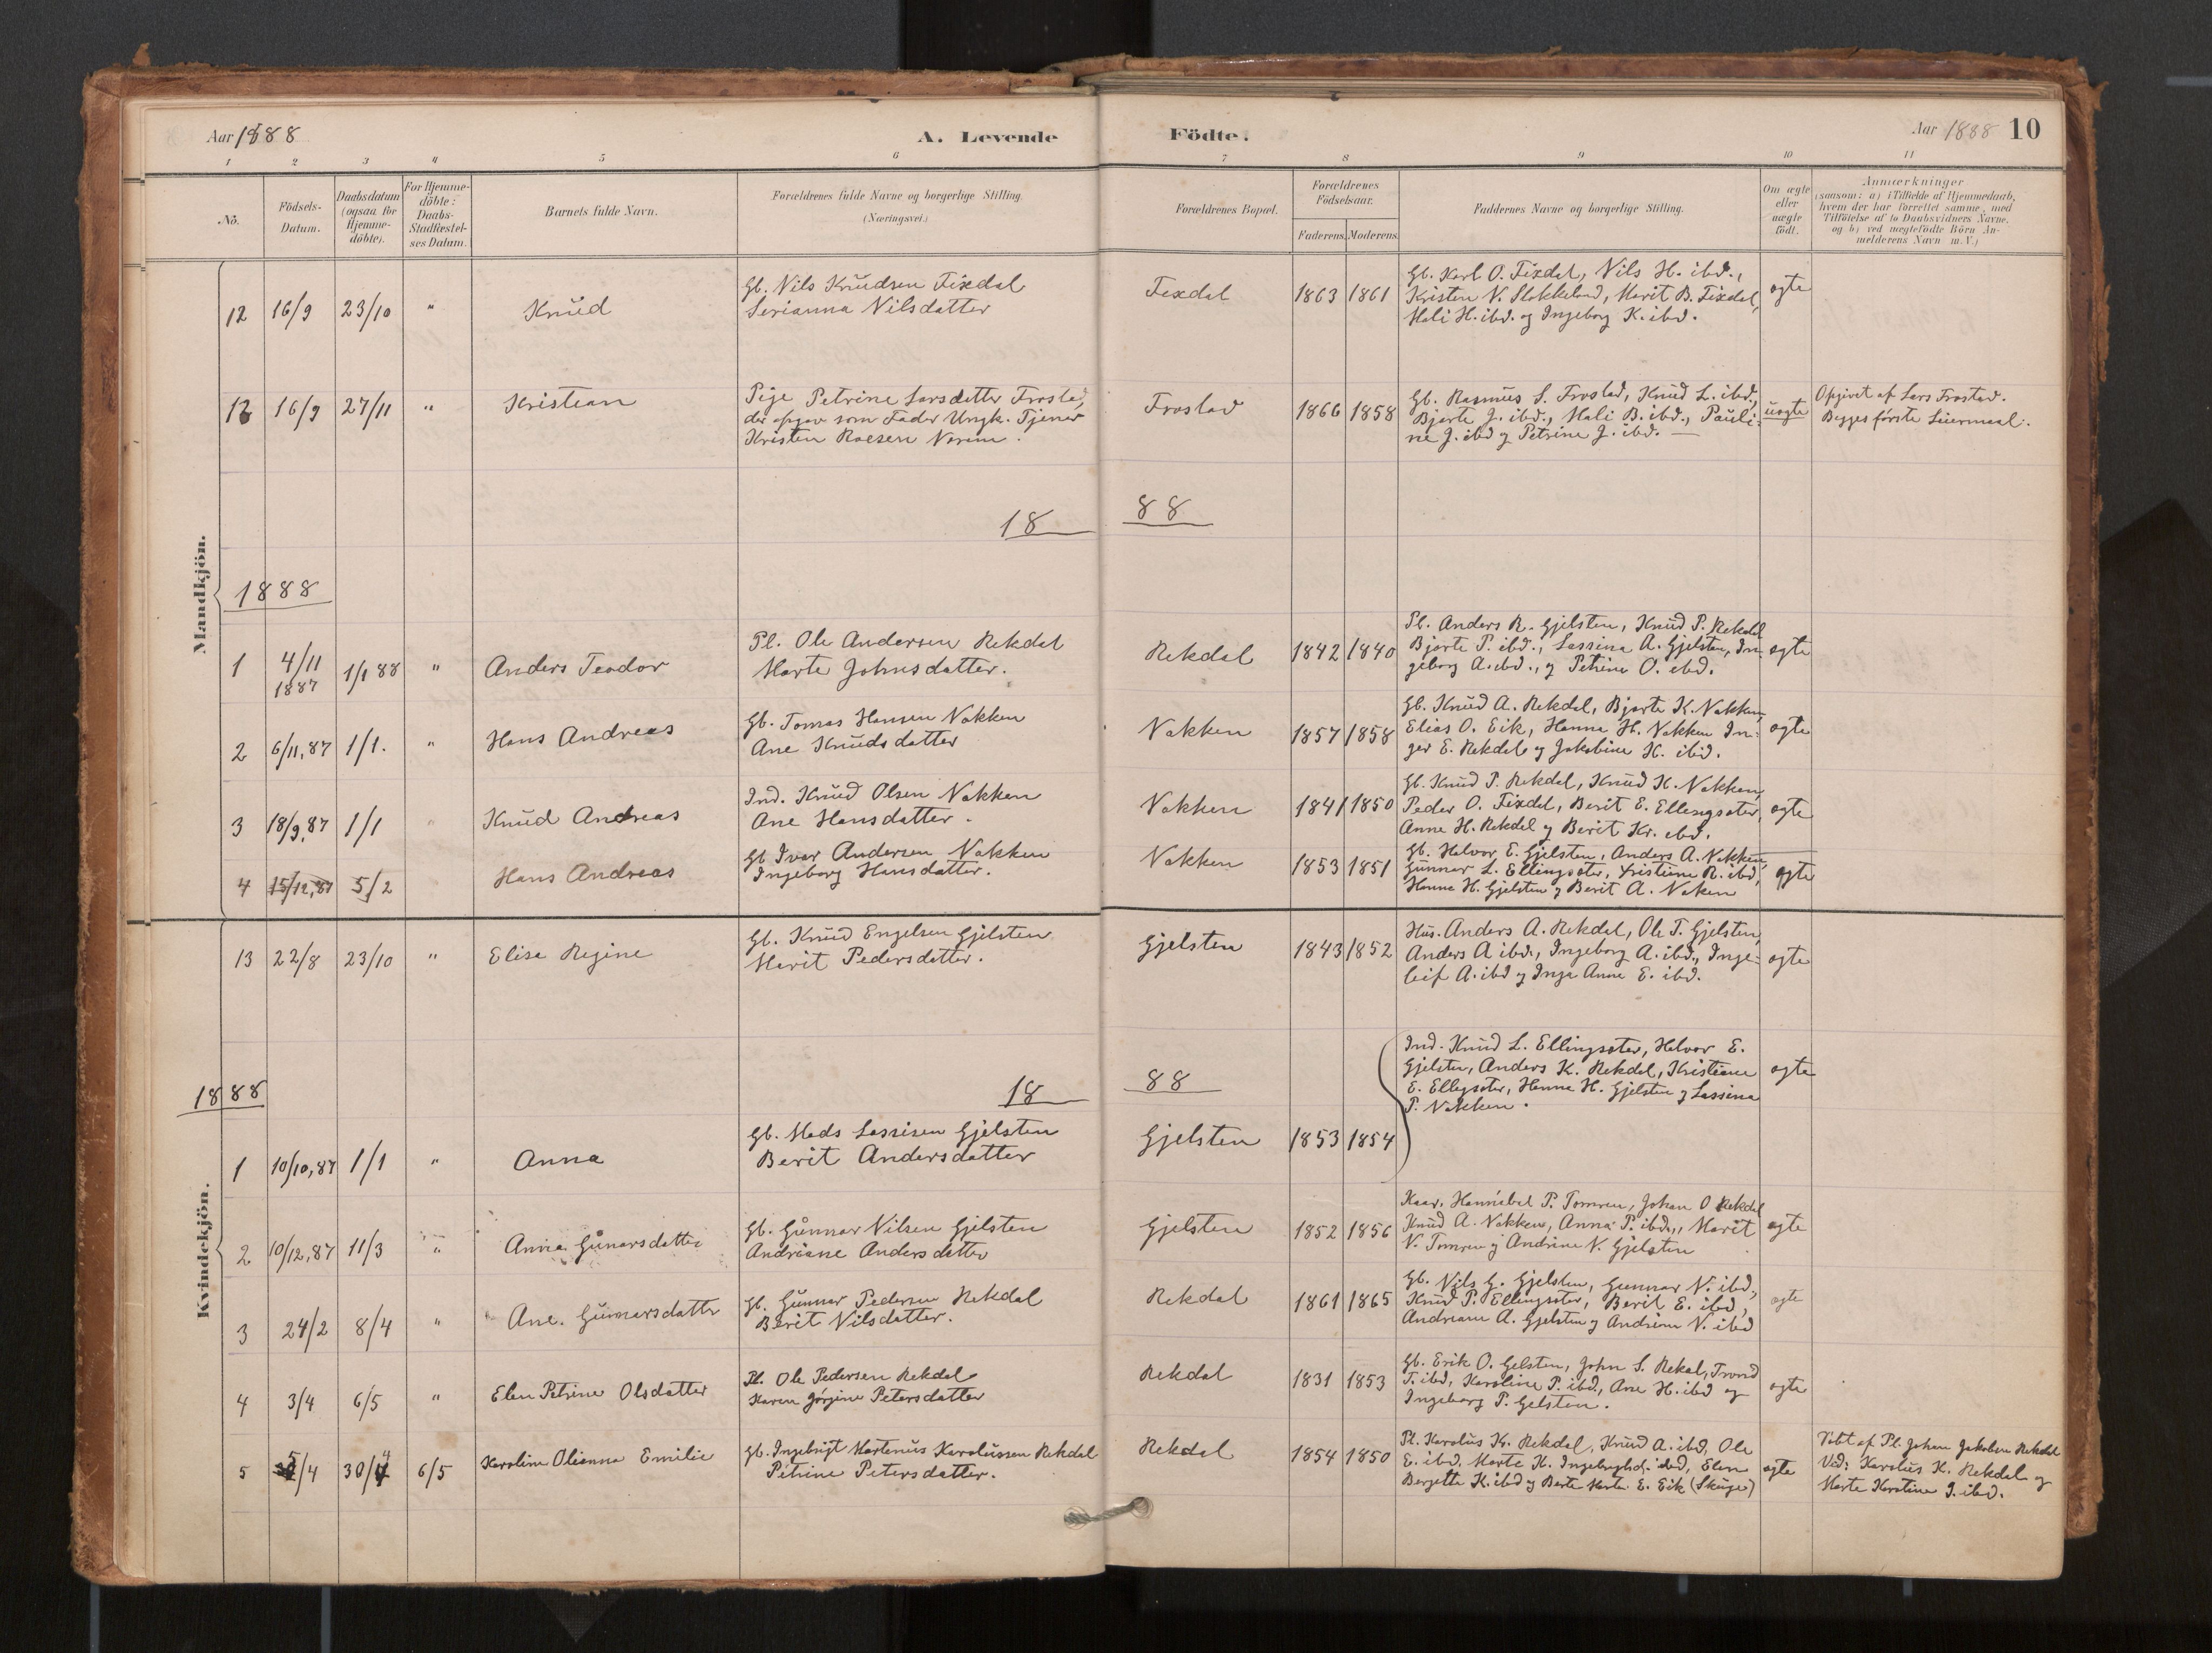 Aar 1888
A. Levende
Födte.
Aar 1888 10
1 2 3 4 5 6 7 8 9 10 11
No.
Födsels-
Datum.
Daabsdatum
(ogsaa for
Hjemme-
döbte).
For Hjemme-
döbte:
Daabs-
Stadfæstel-
ses Datum.
Barnets fulde Navn.
Forældrenes fulde Navne og borgerlige Stilling.
(Næringsvei.)
Forældrenes Bopæl.
Forældrenes
Födselsaar.
Faderens. Moderens.
Faddernes Navne og borgerlige Stilling.
Om ægte
eller
uægte
födt.
Anmærkninger
(saasom: a) i Tilfælde af Hjemmedaab,
hvem der har forrettet samme, med
Tilföielse af to Daabsvidners Navne,
og b) ved uægtefödte Börn An-
melderens Navn m. V.)
Mandkjön.
12 16/9 23/10 " Knud
Gb. Nils Knudsen Fixdal
Serianna Nilsdatter
Fixdal 1863 1861
Gb. Karl O. Fixdal, Nils H. ibd.,
Kristen N. Slakkeland, Marit B. Fixdal,
Mali H. ibd. og Ingeborg K. ibd.
ægte
16/9 27/11 " Kristian
Pige Petrine Larsdatter Frostad,
der opgav som Fader Ungk. Tjener
Kristen Roesen
Frostad 1866 1858
Gb. Rasmus S. Frostad, Knud L. ibd.,
Bjarte J. ibd., Mali B. ibd., Pauli-
ne J. ibd og Petrine J. ibd.
uægte
Opgivet af Lars Frostad.
Begges første Leiermaal.
18 88
1888
1 4/11 1887 1/1 88 " Anders Teodor
Pl. Ole Andersen Rekdal
Marte Johnsdatter.
Rekdal 1842 1840
Pl. Anders R. Gjelsten, Knud P. Rekdal
Bjarte P. ibd., Lassina A. Gjelsten, In-
geborg A. ibd., og Petrine O. ibd.
ægte
2 6/11,87 1/1. " Hans Andreas
Gb. Tomas Hansen Nakken
Ane Knudsdatter
Nakken 1857 1858
Gb. Knud A. Rekdal, Bjarte K. Nakken,
Elias O. Eik, Hanna H. Nakken In-
ger E. Rekdal og Jakobine K. ibid.
ægte
3 18/9,87 1/1 " Knud Andreas
Ind. Knud Olsen Nakken
Ane Hansdatter.
Nakken 1841 1850
Gb. Knud P. Rekdal, Knud K. Nakken,
Peder O. Fixdal, Berit E. Ellengsæter,
Anne H. Rekdal og Berit Kr. ibd.
ægte
4 15/12,87 5/2 Hans Andreas
Gb Ivar Andersen Nakken
Ingeborg Hansdatter.
Nakken 1853 1851
Gb. Halvor E. Gjelsten, Anders A. Nakken,
Gunnar L. Ellingsæter, Kristiane R. ibd,
Hanna H. Gjelsten og Berit A. Naken
ægte
Kvindekjön.
13 22/8 23/10 " Elisa Regine
Gb. Knud Engelsen Gjelsten
Marit Pedersdatter.
Gjelsten 1843 1852
Hus. Anders A. Rekdal, Ole T. Gjelsten,
Anders A ibd., Ingeborg A. ibd., Inge-
leif A. ibd og Inga Anne E. ibd.
ægte
1888
18 88
1 10/10,87 1/1 " Anna
Gb. Mads Lassisen Gjelsten
Berit Andersdatter
Gjelsten 1853 1854
Ind. Knud L. Ellingsæter, Halvor E.
Gjelsten, Anders K. Rekdal, Kristiane
E. Ellegsæter, Hanna H. Gjelsten og Lassina
P. Nakken.
ægte
2 10/12,87 11/3 " Anna Gunarsdatter
Gb. Gunnar Nilsen Gjelsten
Andriane Andersdatter
Gjelsten 1852 1856
Kaar. Hannibal P. Tomren, Johan O Rekdal
Knud A. Nakken, Anna P. ibd., Marit
N. Tomren og Andrine N. Gjelsten
ægte
3 24/2 8/4 " Ane. Gunnarsdatter
Gb. Gunnar Pedersen Rekdal
Berit Nilsdatter.
Rekdal 1861 1865
Gb. Nils G. Gjelsten, Gunnar N. ibd,
Knud P. Ellingsæter, Berit E. ibd,
Andriane A. Gjelsten og Andrine N. ibd
ægte
4 3/4 6/5 " Elen Petrine Olsdatter
Pl. Ole Pedersen Rekdal
Karen Jørgine Petersdatter
Rekdal 1831 1853
Gb. Erik O. Gelsten, John S. Rekal, Trond
T. ibd, Karoline P. ibd, Ane H. ibd og
Ingeborg P. Gelsten.
ægte
5 5/4 30/4 6/5 Karoline Olianna Emilie
Gb. Ingebrigt Martenus Karolussen Rekdal
Petrine Petersdatter.
Rekdal 1854 1850
Pl. Karolus Kr. Rekdal, Knud A. ibd, Ole
E. ibd. Marte K. ibd, Elen
Bergette K. ibd og Berte Marta E. Eik
ægte
Døbt af Pl. Johan Jakobsen Rekdal
Vid: Karolus K. Rekdal og
Marte Karstine I. ibd.